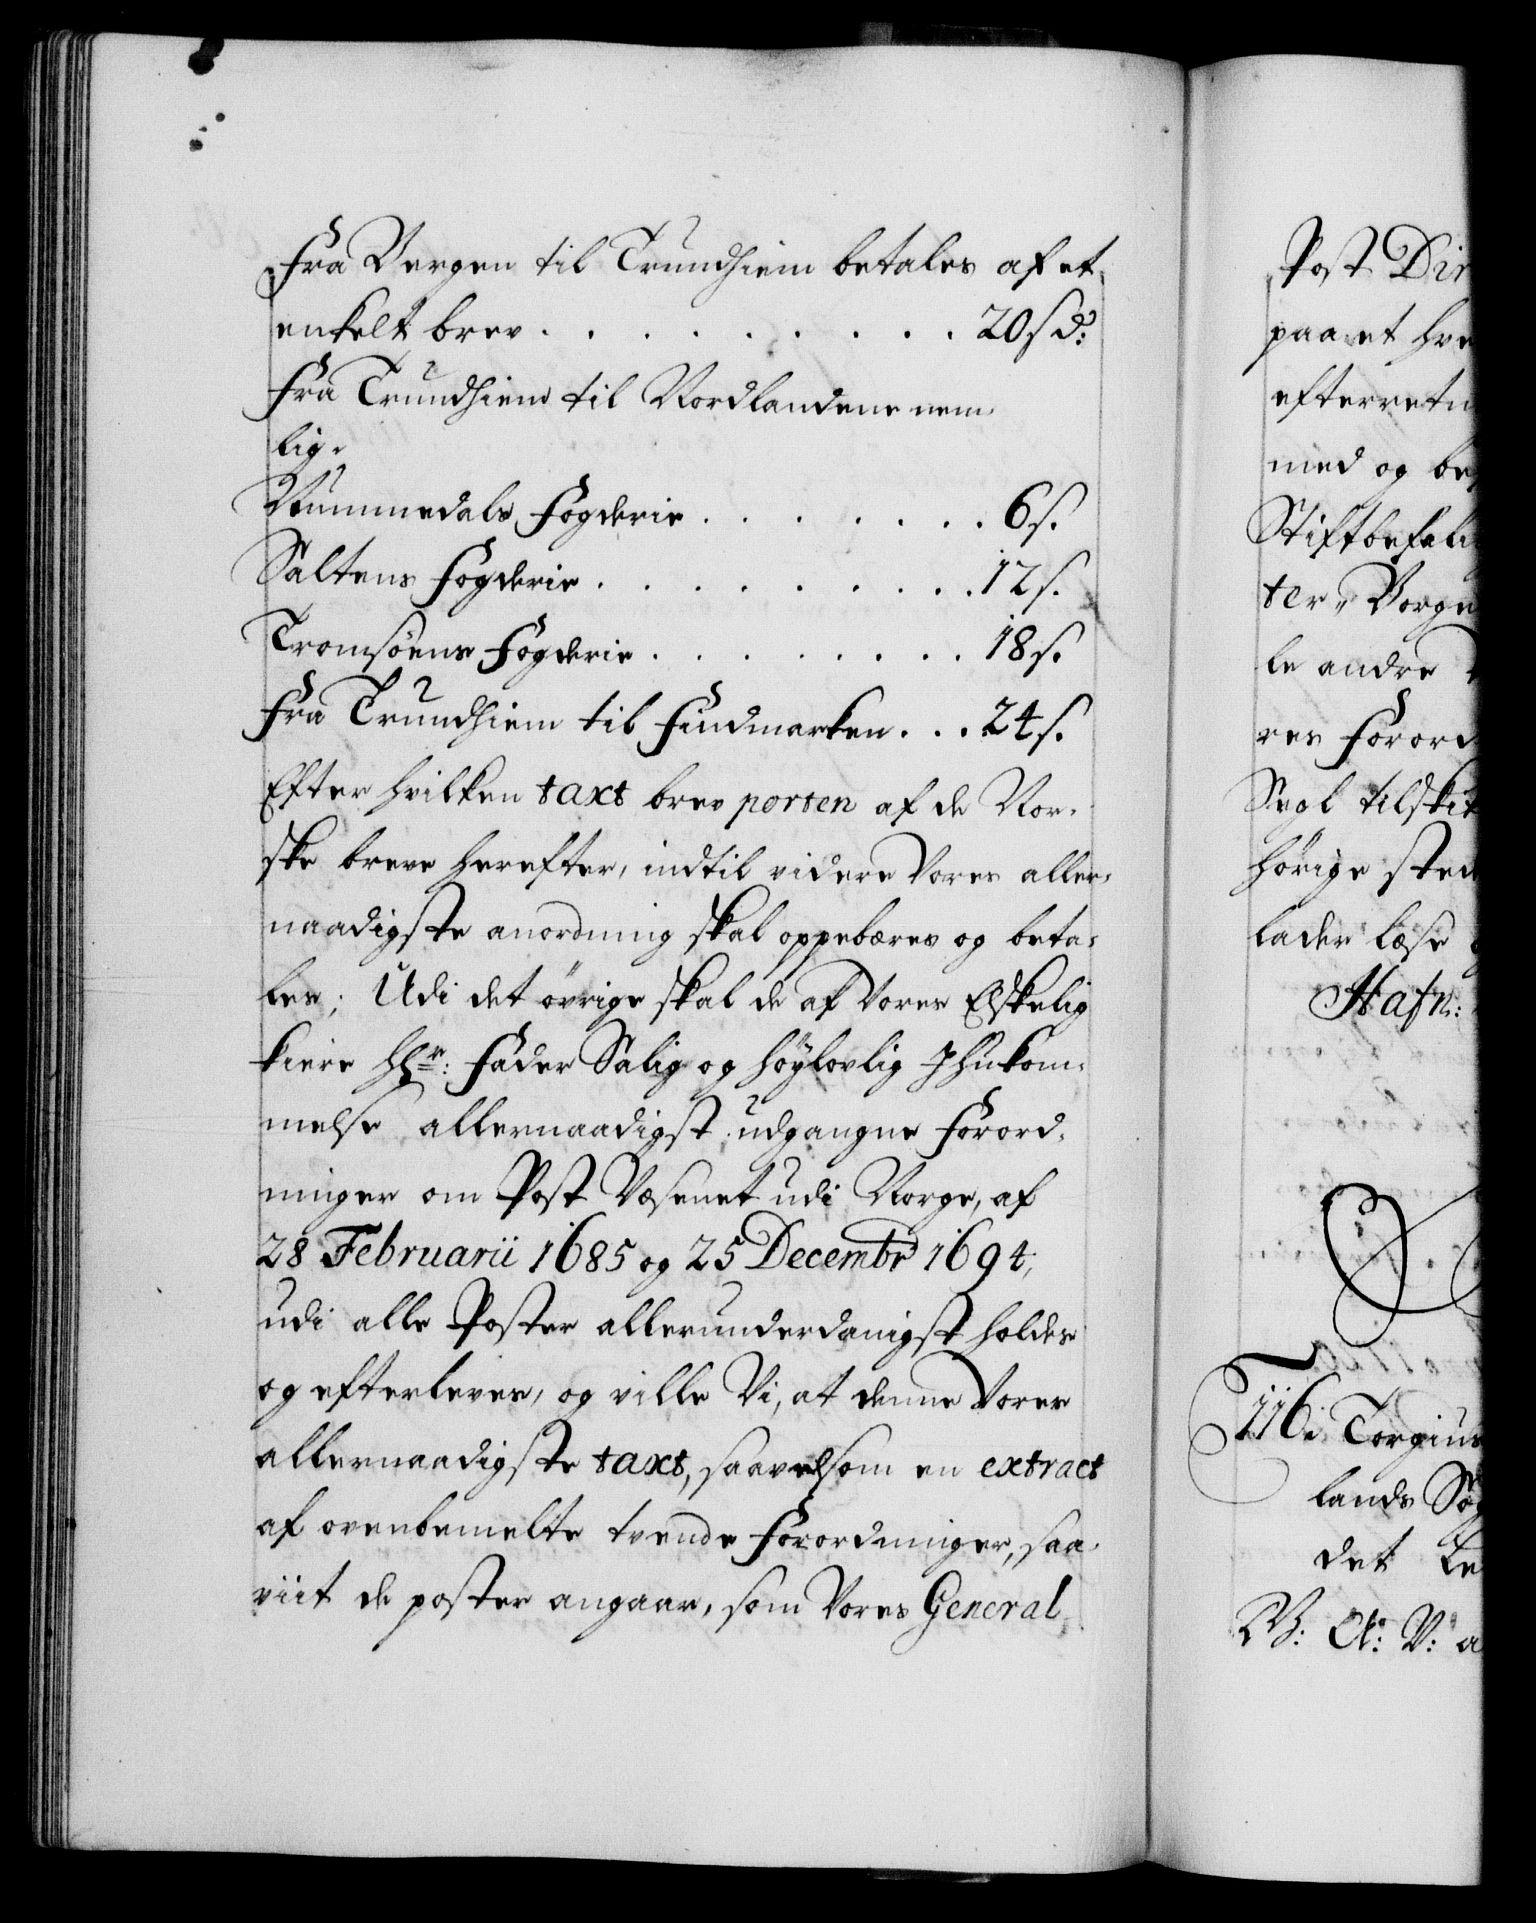 Fra Bergen til Trundhiem betales af et
enkelt brev . . . . . . . . . 20 s d:
Fra Trundhiem til Nordlandene nem-
lig.
Nummedals Fogderie . . . . . . . . 6 s.
Saltens Fogderie . . . . . . . . . 12 s.
Tromsöens Fogderie . . . . . . . . 18 s.
Fra Trundhiem til Findmarken . . . 24 s.
Efter hvilken taxt brev porten af de Nor-
ske breve herefter, indtil videre Vores aller-
naadigste anordning skal oppebæres og beta-
les; Udi det övrige skal de af Vores Elskelig
kiere Hr: Fader Salig og höylovlig Ihukom-
melse allernaadigst udgangne Forord-
ninger om Post Væsenet udi Norge, af
28 Februarii 1685 og 25 Decembr 1694,
udi alle Poster allerunderdanigst holdes
og efterleves, og ville Vi, at denne Vores
allernaadigste taxt, saavelsom en extract
af ovenbemelte tvende Forordninger, saa-
viit de poster angaar, som Vores General
Post Dir
paa et hve
efterretn
med og be
Stiftbefali
ter, Borge
le andre
res Forord
Segl tilskik
hörige sted
lader læse
Hafn:
116. Torgius
lands Sog
det Le
V: a